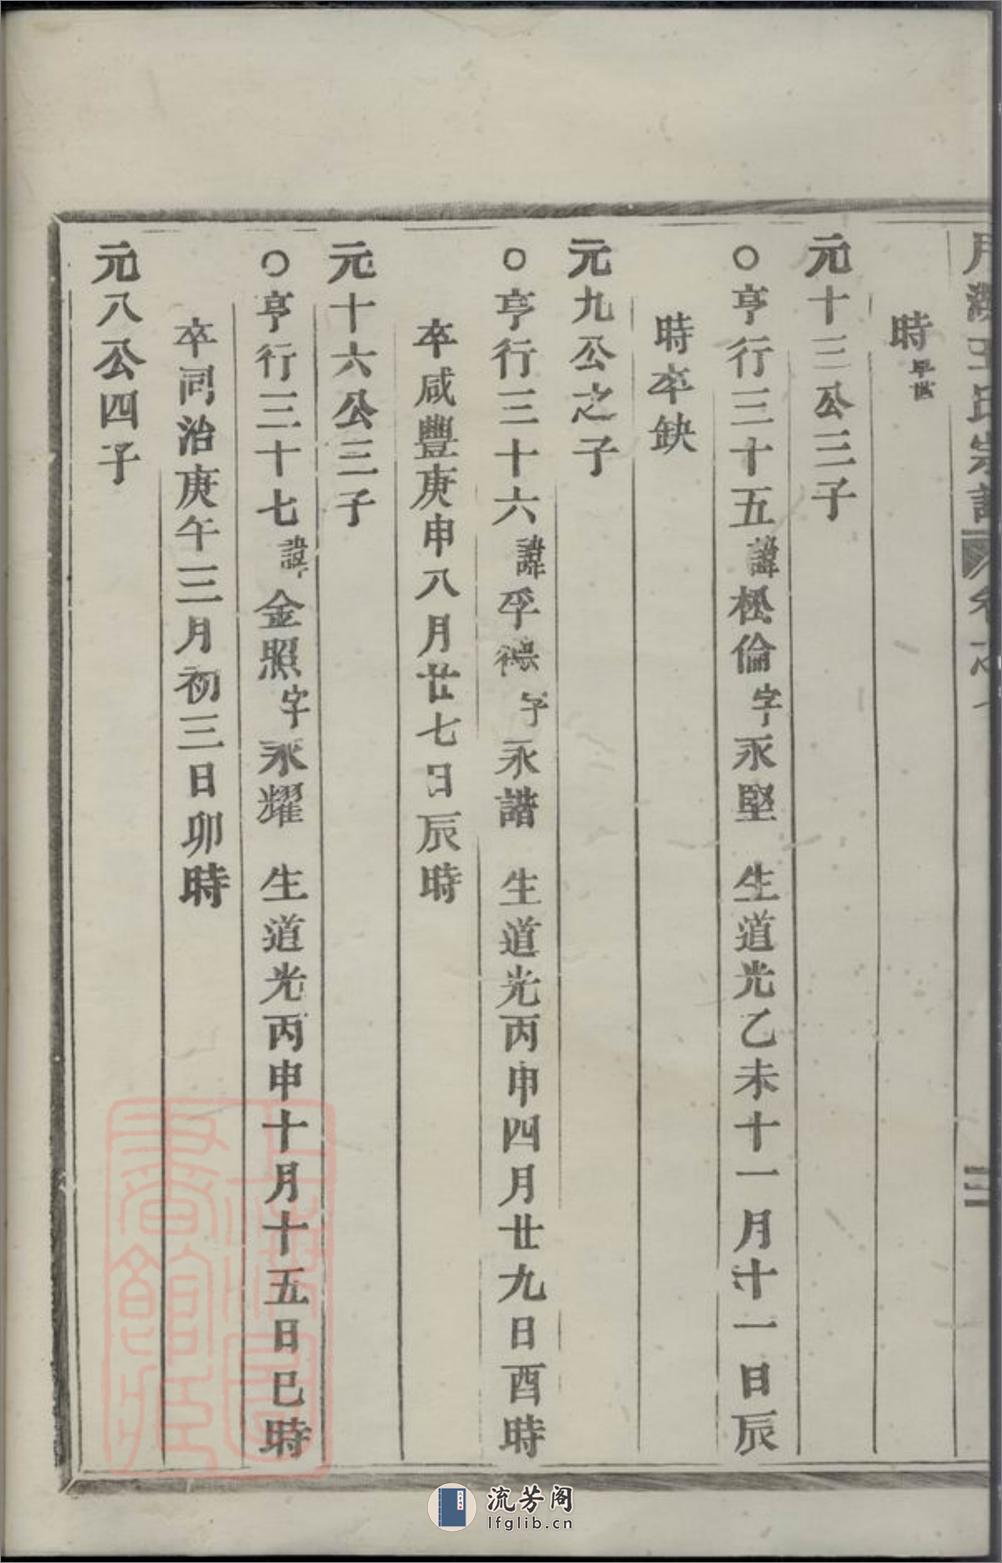 王氏宗譜
時早世
元十三公三子
○亨行三十五諱松倫字永堅 生道光乙未十一月十一日辰
時卒缺
元九公之子
○亨行三十六諱孚字永諧 生道光丙申四月廿九日酉時
卒咸豐庚申八月廿七日辰時
元十六公三子
○亨行三十七諱金照字永耀 生道光丙申十月十五日巳時
卒同治庚午三月初三日卯時
元八公四子
上海圖書館藏
流芳阁
lfglib.cn